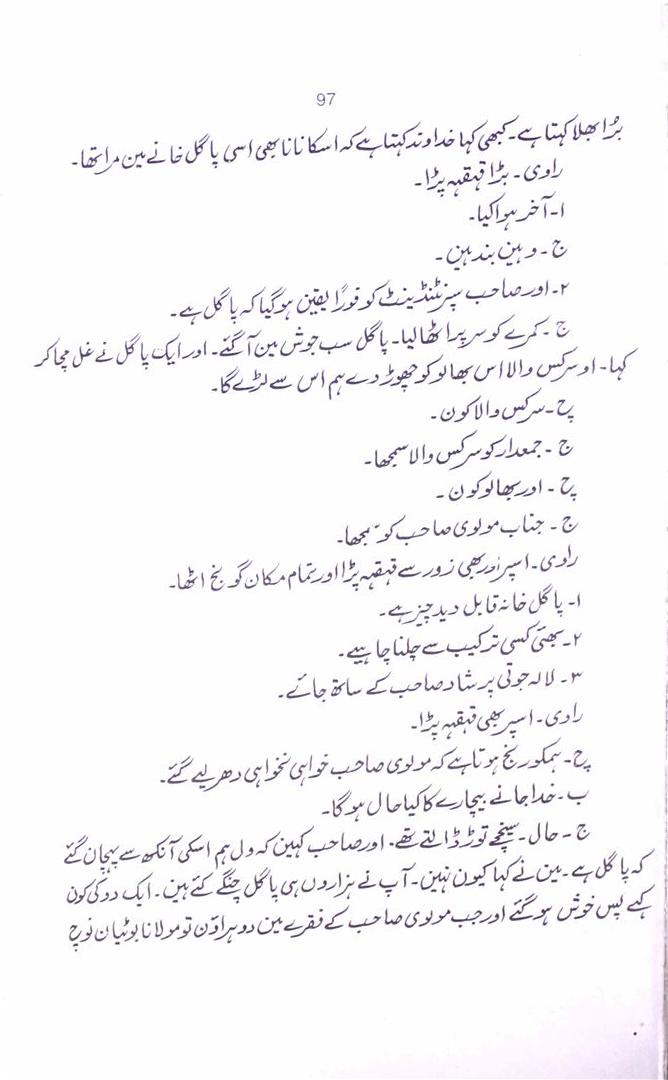 97
برُا بھلا کہتا ہے۔ کبھی کہا خداوند کہتا ہے کہ اسکا نانا بھی اسی پاگل خانے مین مرا تھا۔
راوی۔ بڑا قہقہہ پڑا۔
۱۔ آخر ہوا کیا۔
ج۔ وہین بند ہین۔
۲۔ اور صاحب سپرنٹنڈینٹ کو فوراً یقین ہو گیا کہ پاگل ہے۔
ج۔ کمرے کو سر پر اٹھا لیا۔ پاگل سب جوش مین آ گئے۔ اور ایک پاگل نے غل مچا کر
کہا۔ او سرکس والا اس بھالو کو چھوڑ دے ہم اس سے لڑے گا۔
پح۔ سرکس والا کون۔
ج۔ جمعدار کو سرکس والا سمجھا۔
پح۔ اور بھالو کون۔
ج۔ جناب مولوی صاحب کو سمجھا۔
راوی۔ اسپر اور بھی زور سے قہقہہ پڑا اور تمام مکان گونج اٹھا۔
۱۔ پاگل خانہ قابل دید چیز ہے۔
۲۔ بھئی کسی ترکیب سے چلنا چاہیے۔
۳۔ لالہ جوتی پرشاد صاحب کے ساتھ جائے۔
راوی۔ اسپر بھی قہقہہ پڑا۔
پح۔ ہمکو رنج ہوتا ہے کہ مولوی صاحب خواہی نخواہی دھر لیے گئے۔
ب۔ خدا جانے بیچارے کا کیا حال ہو گا۔
ج۔ حال۔ سینخچے توڑ ڈالتے تھے۔ اور صاحب کہین کہ ول ہم اسکی آنکھ سے پہچان گئے
کہ پاگل ہے۔ مین نے کہا کیون نہین۔ آپ نے ہزاروں ہی پاگل چنگے کئے ہین۔ ایک دو کی کون
کہے پس خوش ہو گئے اور جب مولوی صاحب کے فقرے مین دوہراؤن تو مولانا بوٹیان نوچ